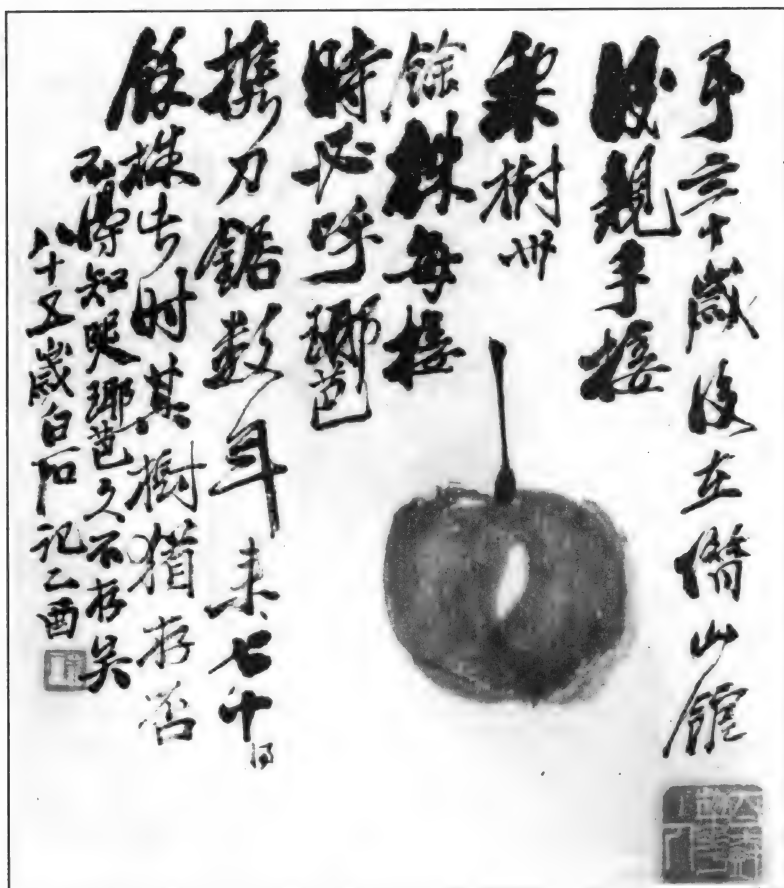 予六十歲後在借山館
後親手接
梨樹卅
餘株每接
時必呼瑯芭
攜刀鋸数年来七十
餘株古时其樹猶存否
不得知哭瑯芭久不存矣
八十五歲白石记乙酉